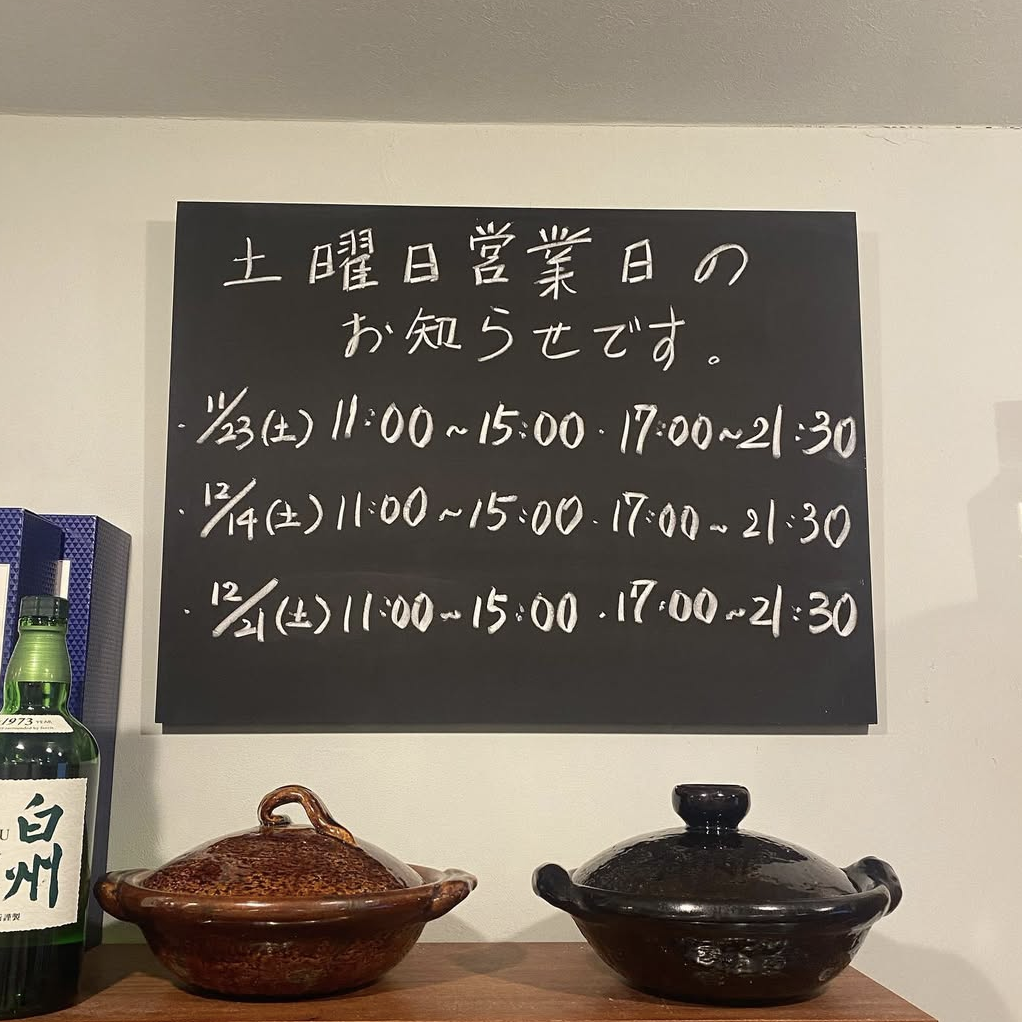 土曜日営業日の
お知らせです。
・11/23(土) 11:00~15:00・17:00~21:30
・12/14(土) 11:00~15:00・17:00~21:30
・12/21(土) 11:00~15:00・17:00~21:30
1973 YEAR
白州
謹製